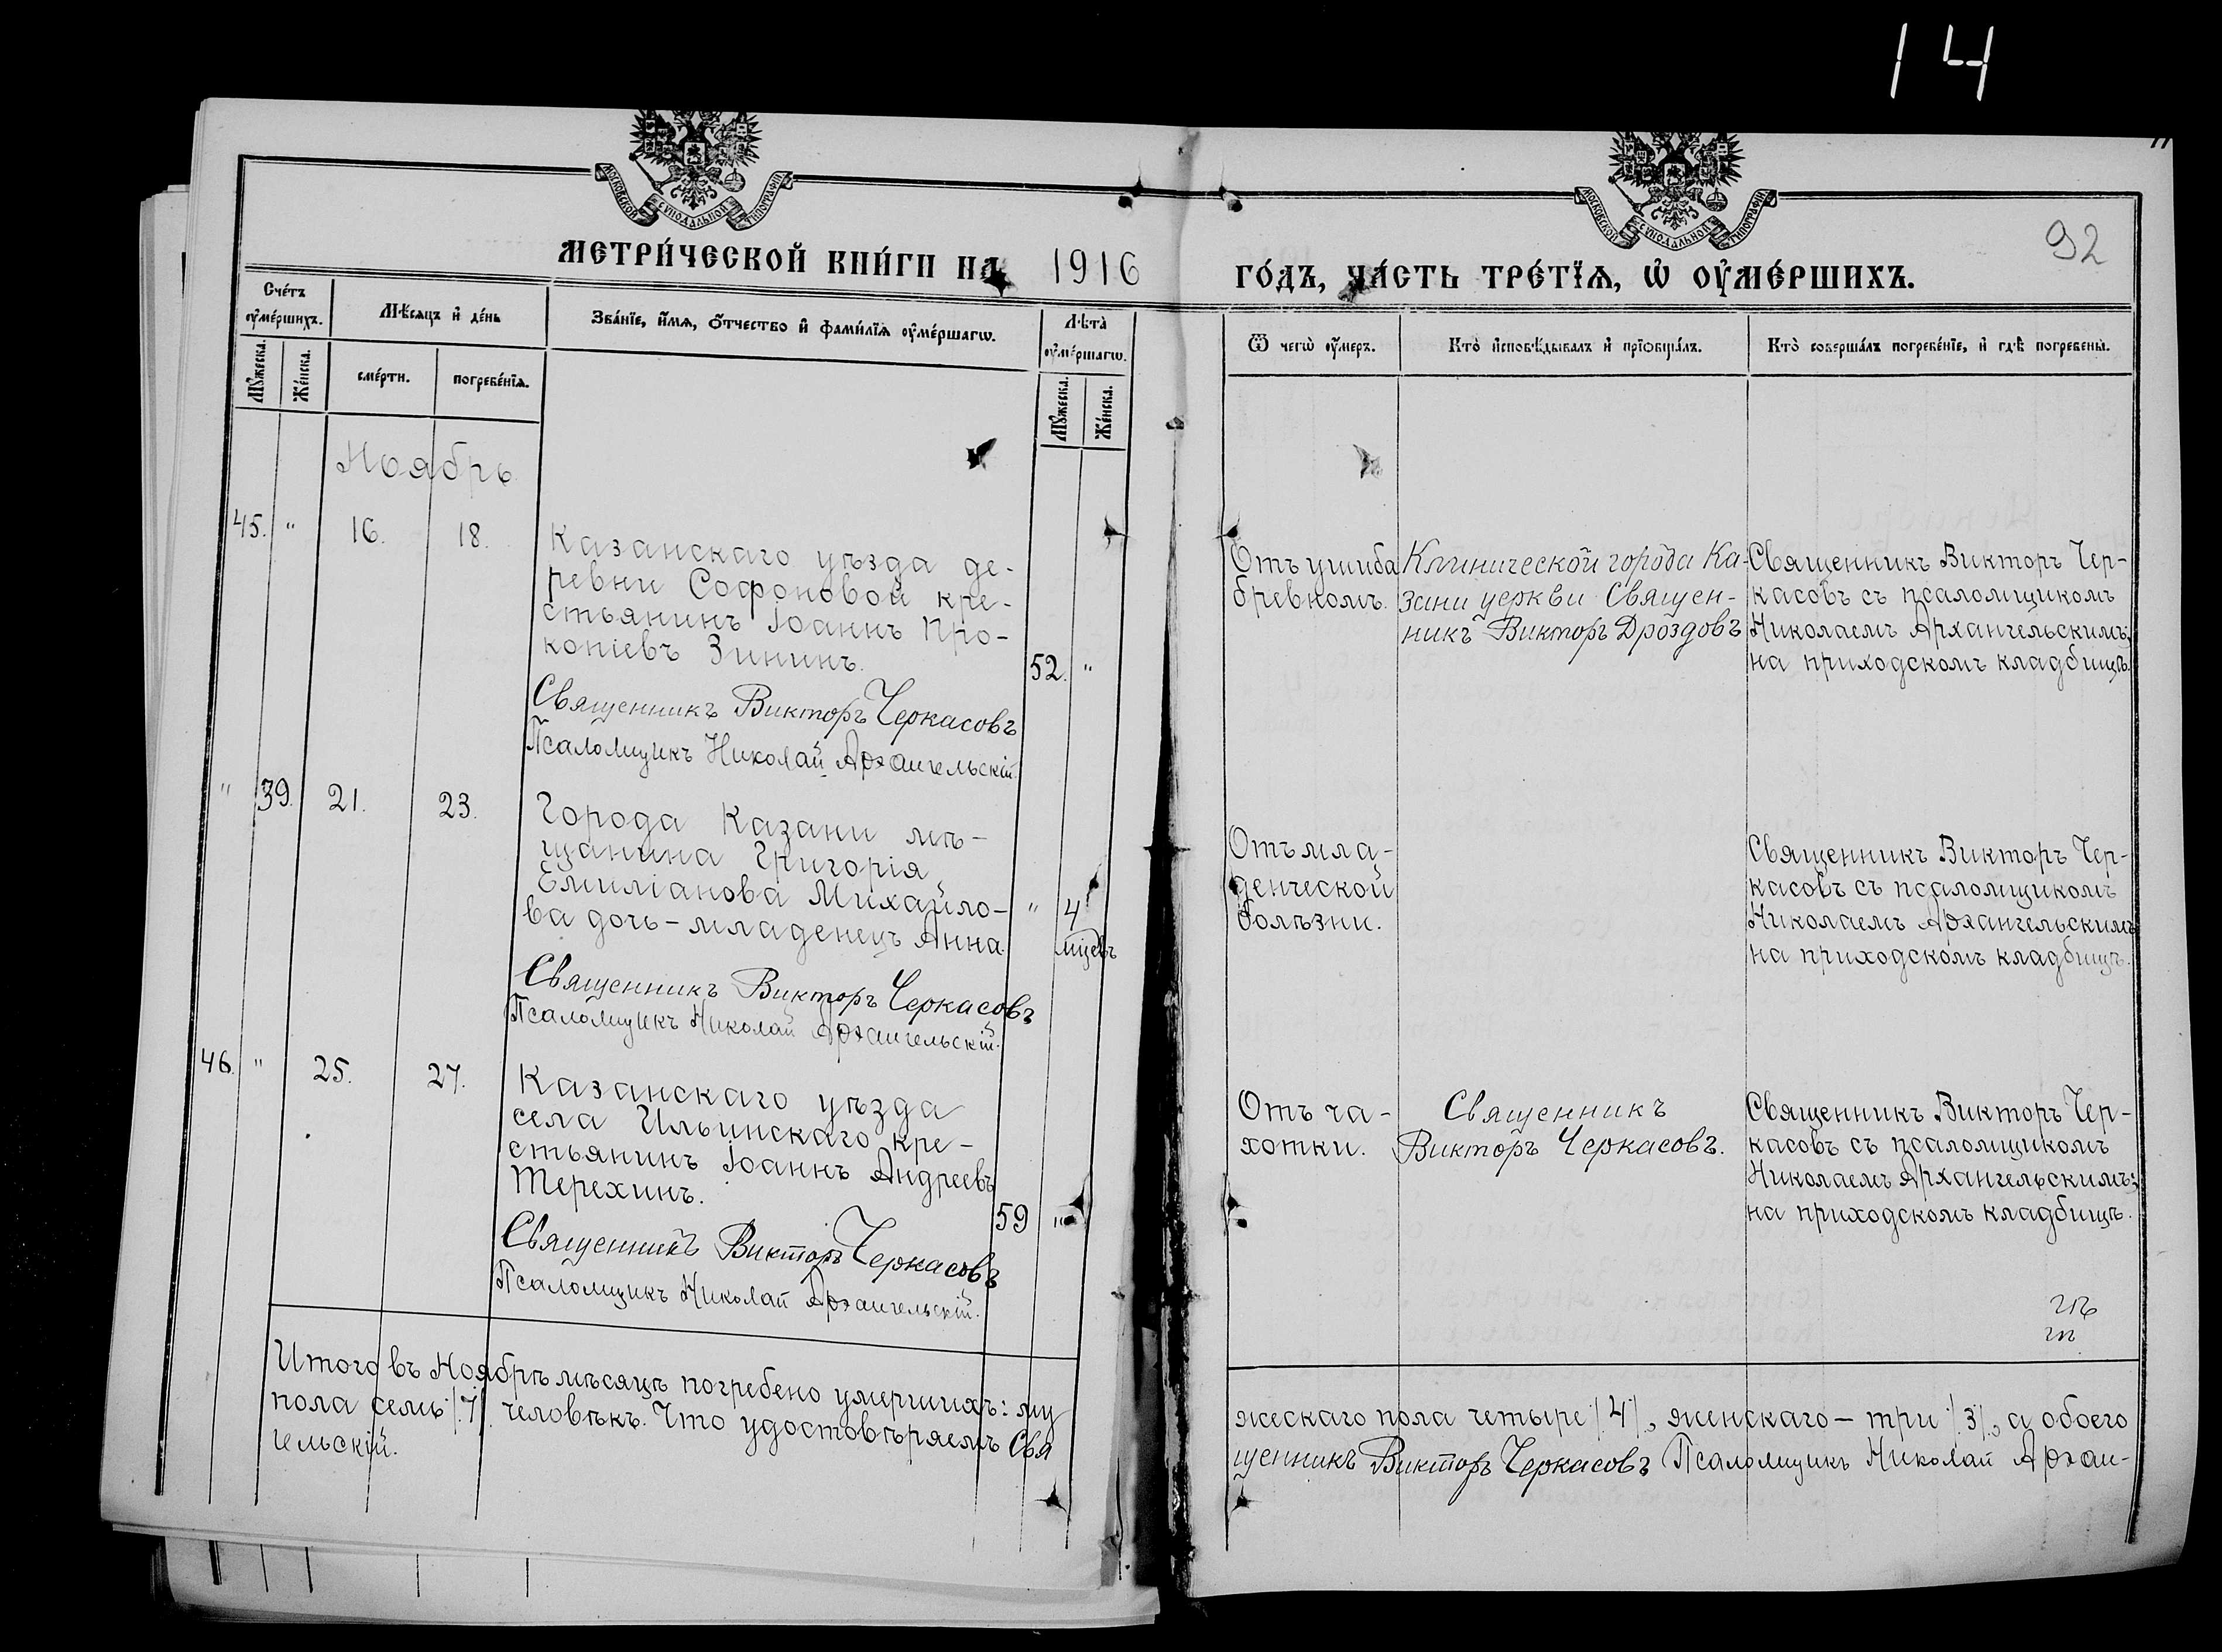 14
МОСКОВСКОЙ СѴНОДАЛЬНОЙ ТИПОГРАФІИ
МОСКОВСКОЙ СѴНОДАЛЬНОЙ ТИПОГРАФІИ
92
МЕТРИ́ЧЕСКОЙ КНИ́ГИ НА 1916 ГО́ДЪ, ЧА́СТЬ ТРЕ́ТЇѦ, Ѡ҆ ОУ҆МЕ́РШИХЪ.
Сче́тъ оу҆ме́ршихъ.
Мꙋ́жеска.
Же́нска.
Мѣ́сѧцъ и҆ де́нь
сме́рти.
погребе́нїѧ.
Зва́нїе, и҆́мѧ, ѻ҆́тчество и҆ фами́лїѧ оу҆ме́ршагѡ.
Лѣта̀ оу҆ме́ршагѡ.
Мꙋ́жеска.
Же́нска.
Ѿ чегѡ̀ оу҆́меръ.
Кто̀ и҆сповѣ́дывалъ и҆ прїѡбща́лъ.
Кто̀ соверша́лъ погребе́нїе, и҆ гдѣ̀ погребены̀.
Ноябрь
45. " 16. 18.
Казанскаго уѣзда де-
ревни Софоновой кре-
стьянинъ Іоаннъ Про-
копіевъ Зининъ.
52. "
Священникъ Викторъ Черкасовъ
Псаломщикъ Николай Архангельскій.
Отъ ушиба
бревномъ.
Клинической города Ка-
зани церкви Священ-
никъ Викторъ Дроздовъ
Священникъ Викторъ Чер-
касовъ съ псаломщикомъ
Николаемъ Архангельскимъ;
на приходскомъ кладбищѣ.
" 39. 21. 23.
Города Казани мѣ-
щанина Григорія
Емиліанова Михайло-
ва дочь-младенецъ Анна.
" 4
мцевъ
Священникъ Викторъ Черкасовъ
Псаломщикъ Николай Архангельскій.
Отъ мла-
денческой
болѣзни.
Священникъ Викторъ Чер-
касовъ съ псаломщикомъ
Николаемъ Архангельскимъ
на приходскомъ кладбищѣ.
46. " 25. 27.
Казанскаго уѣзда
села Ильинскаго кре-
стьянинъ Іоаннъ Андреевъ
Терехинъ.
59 "
Священникъ Викторъ Черкасовъ
Псаломщикъ Николай Архангельскій.
Отъ ча-
хотки.
Священникъ
Викторъ Черкасовъ.
Священникъ Викторъ Чер-
касовъ съ псаломщикомъ
Николаемъ Архангельскимъ;
на приходскомъ кладбищѣ.
Итого въ Ноябрѣ мѣсяцѣ погребено умершихъ: му
жескаго пола четыре /4/, женскаго – три /3/, а обоего
пола семь /7/ человѣкъ. Что удостовѣряемъ Свя
щенникъ Викторъ Черкасовъ Псаломщикъ Николай Архан-
гельскій.